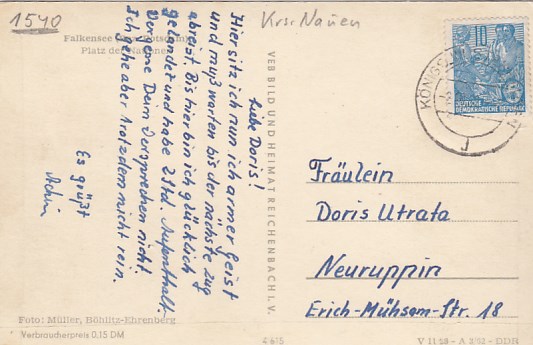 1540
Krs. Nauen
Falkensee
Platz der
Liebe Doris!
Hier sitz ich nun ich armer Geist
und muß warten bis der nächste Zug
abreist. Bis hier bin ich glücklich
gelandet und habe 2 Std. Aufenthalt.
Vergesse Dein Versprechen nicht.
Ich gehe aber trotzdem nicht rein.
Es grüßt
Achim
VEB BILD UND HEIMAT REICHENBACH I. V.
KÖNIGS
DEUTSCHE
DEMOKRATISCHE REPUBLIK
10
Fräulein
Doris Utrata
Neuruppin
Erich-Mühsam-Str. 18
Foto: Müller, Böhlitz-Ehrenberg
Verbraucherpreis 0,15 DM
DDR